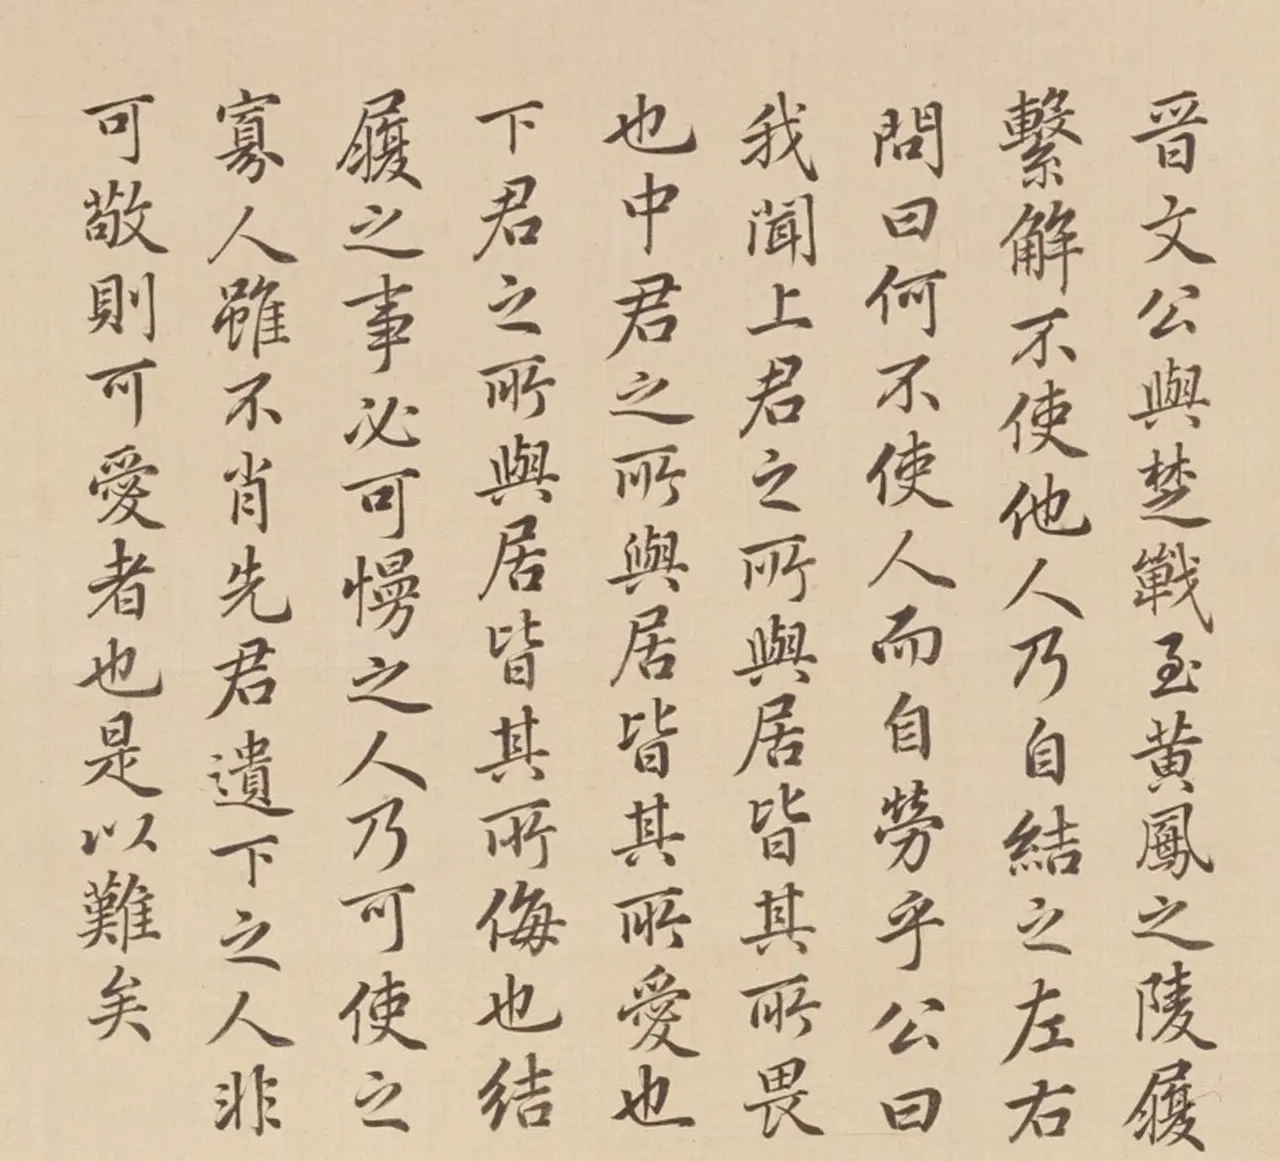 晉文公與楚戰至黃鳳之陵履
繫解不使他人乃自結之左右
問曰何不使人而自勞乎公曰
我聞上君之所與居皆其所畏
也中君之所與居皆其所愛也
下君之所與居皆其所侮也结
履之事必可慢之人乃可使之
寡人雖不肖先君遺下之人非
可敬則可愛者也是以難矣